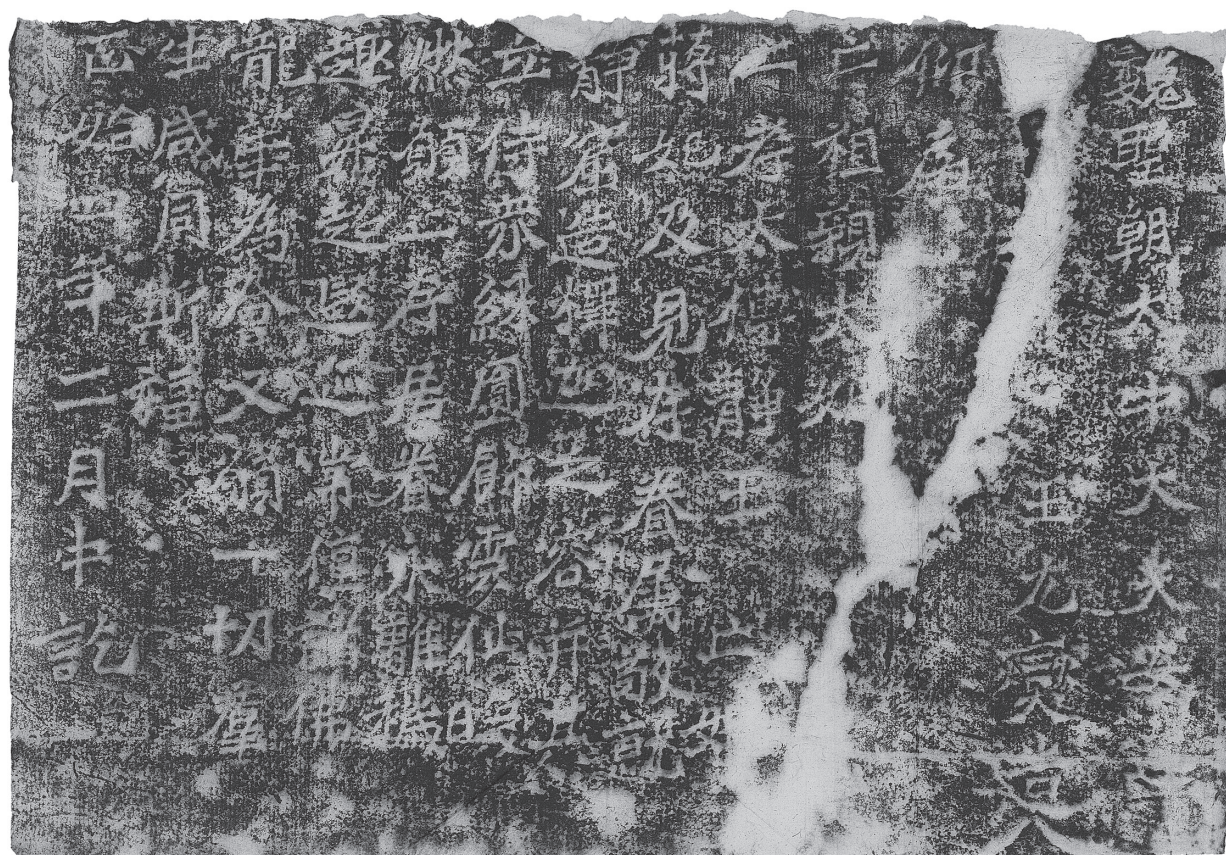 魏聖朝太中大夫安定
王元燮造
仰為
亡祖親太妃
亡考太傅靜王亡妣
蔣妃及見存眷属敬就
靜窟造釋迦之容并其
立侍眾綵圓飾雲仙曖
然願亡存居眷永離穢
趣昇超遐迹常值諸佛
龍華為會又願一切羣
生咸同斯福
正始四年二月中訖